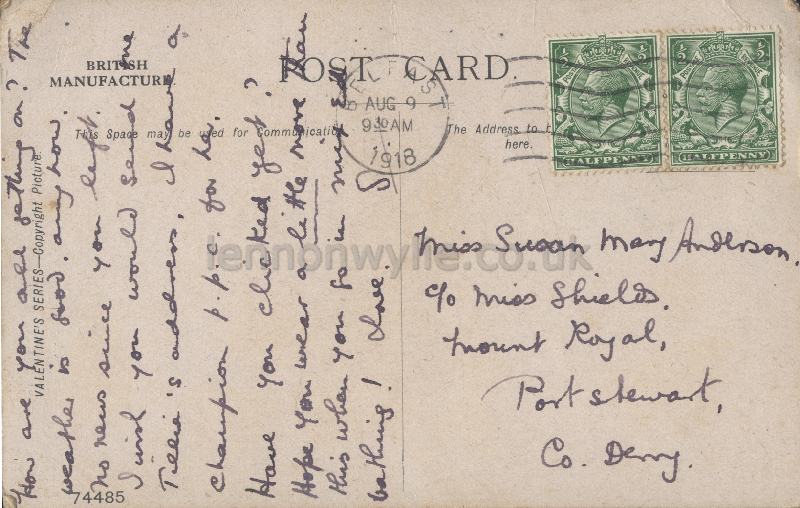 BRITISH
MANUFACTURE
POST CARD.
This Space may be used for Communication
The Address to
here.
VALENTINE'S SERIES—Copyright Picture.
74485
BELFAST
AUG 9
9 30 AM
1918
HALFPENNY
HALFPENNY
How are you all getting on? The
weather is good, anyhow.
No news since you left.
I wish you would send me
Tillie's address. I have a
champion p.p.c. for her.
Have you clicked yet?
Hope you wear a little more than
this when you go in mixed
bathing! Love. S.
Miss Susan Mary Anderson.
c/o Miss Shields,
Mount Royal,
Portstewart,
Co. Derry.
lennonwylie.co.uk